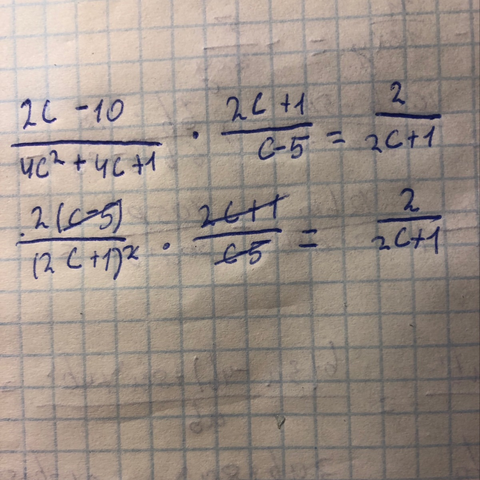 (2c - 10)/(4c² + 4c + 1) · (2c + 1)/(c - 5) = 2/(2c + 1)
2(c - 5)/(2c + 1)² · (2c + 1)/(c - 5) = 2/(2c + 1)